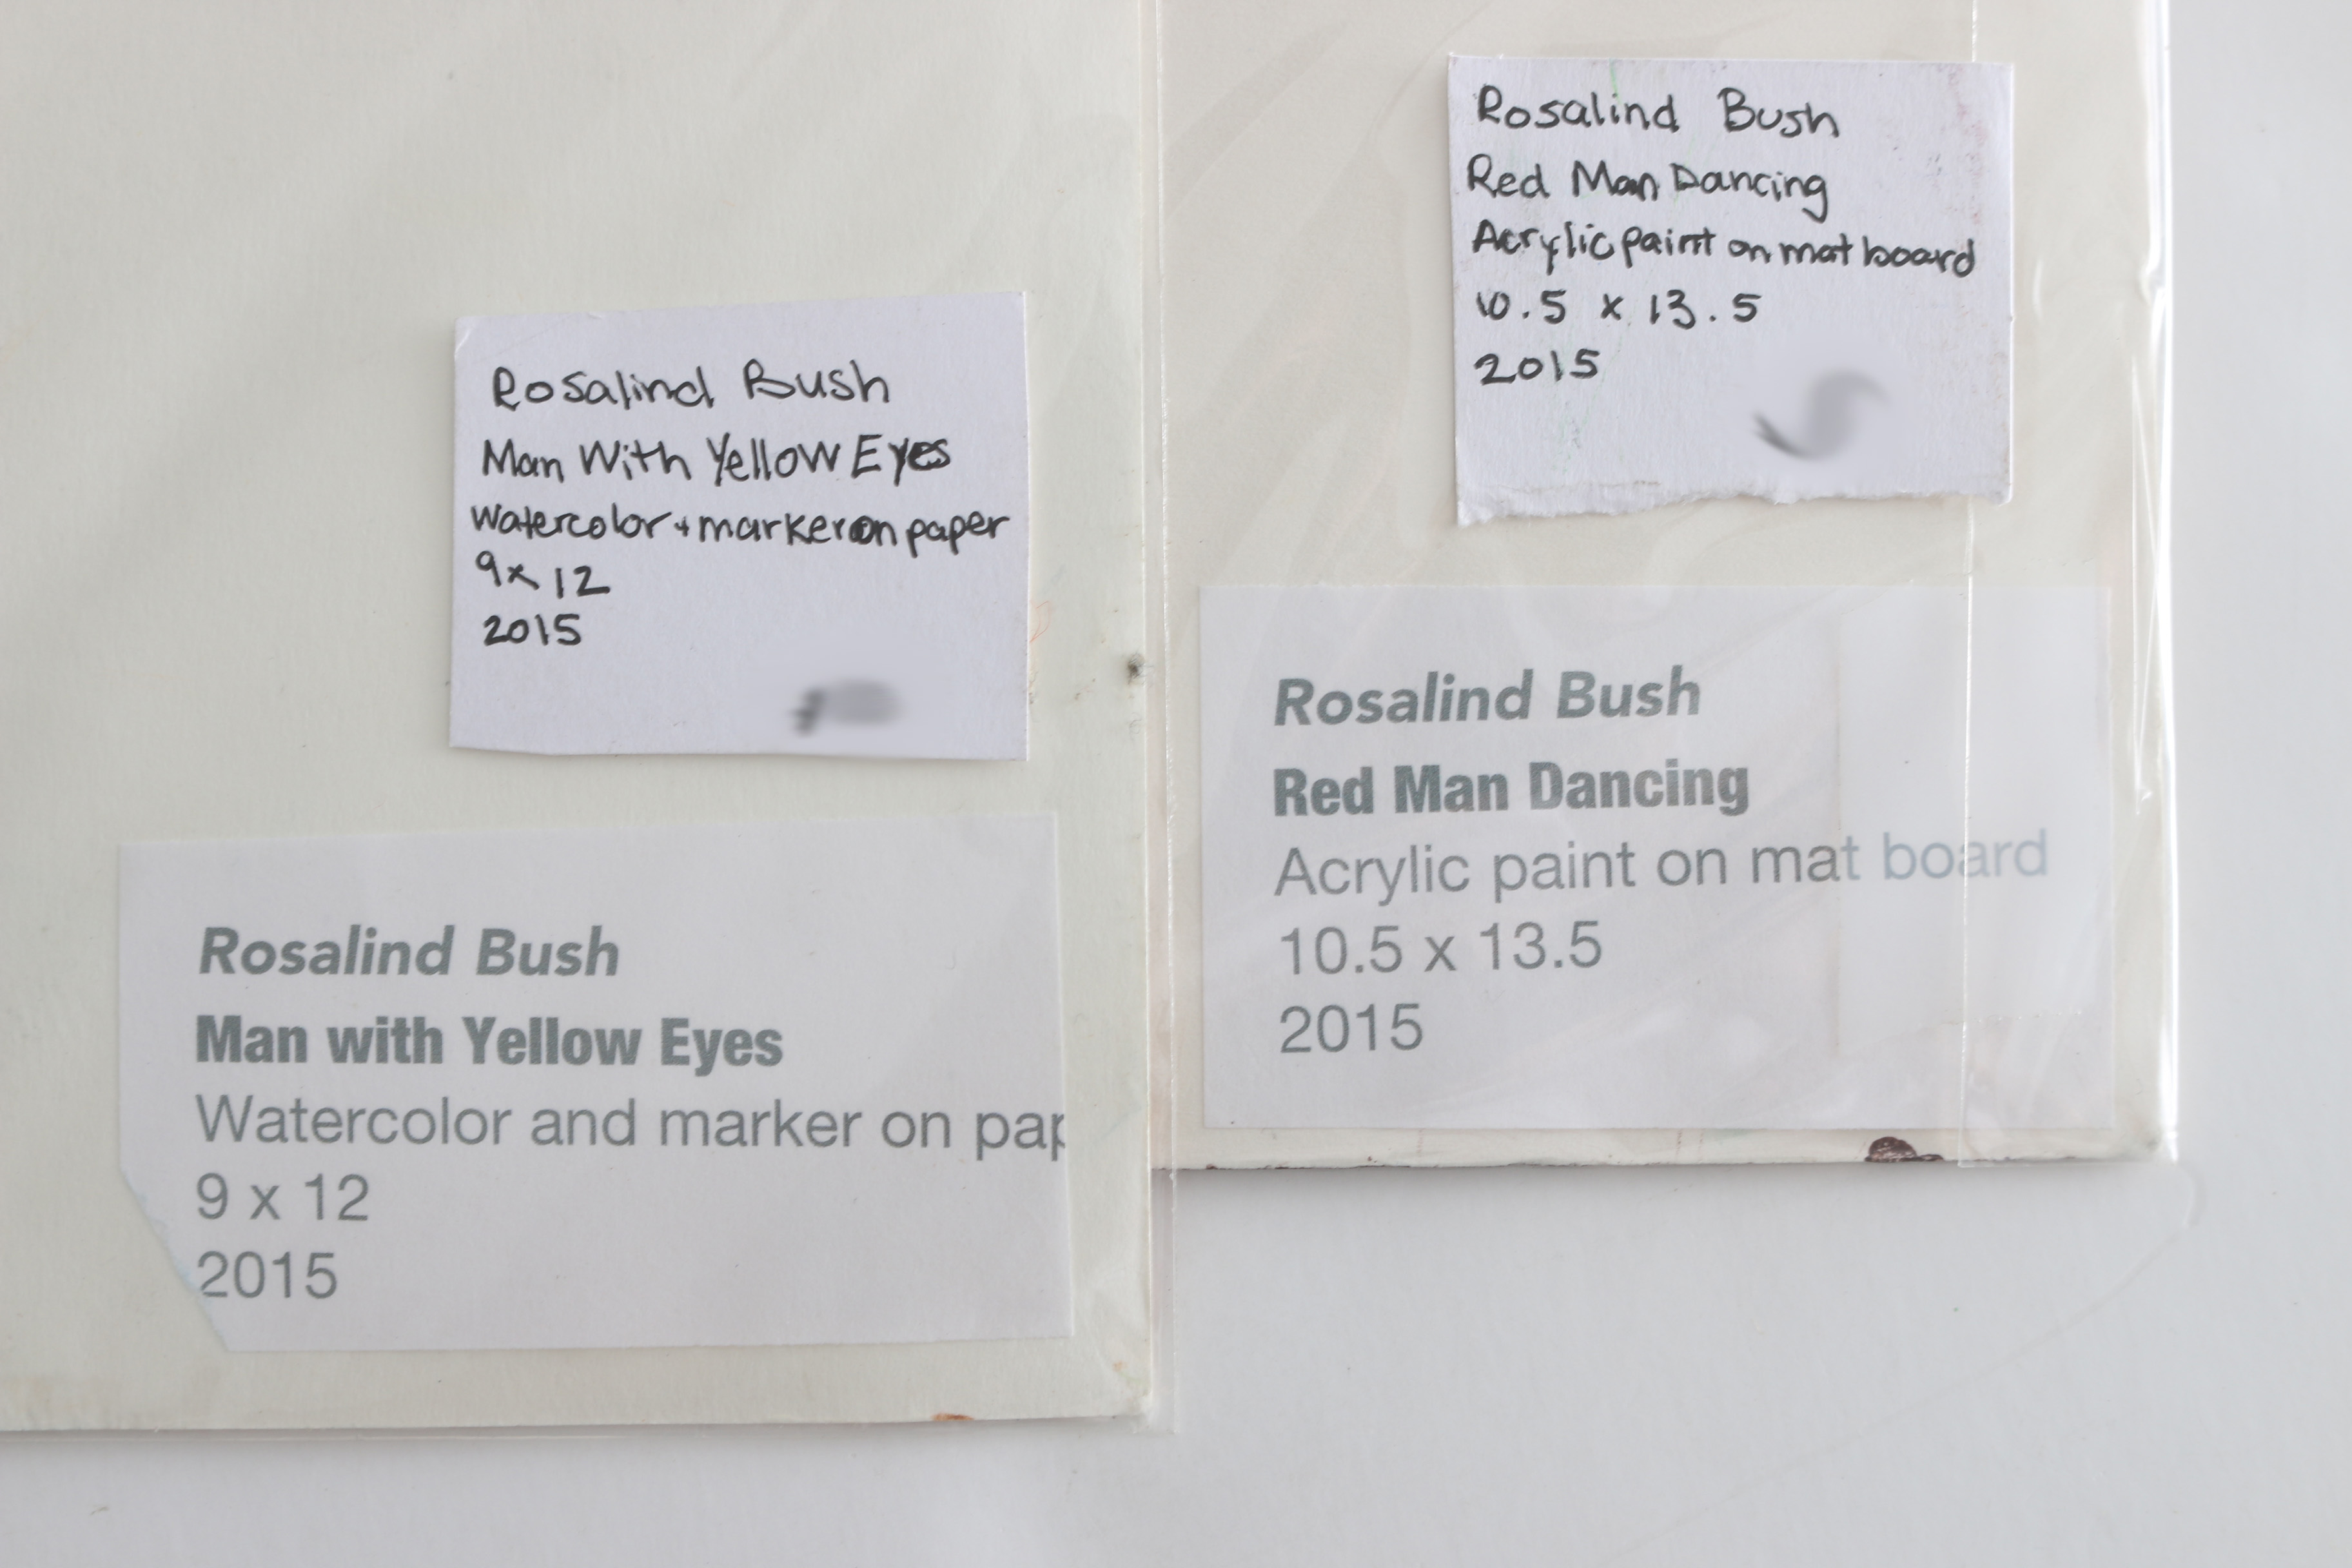 Rosalind Bush
Man With Yellow Eyes
Watercolor + marker on paper
9 x 12
2015
Rosalind Bush
Man with Yellow Eyes
Watercolor and marker on pap
9 x 12
2015
Rosalind Bush
Red Man Dancing
Acrylic paint on mat board
10.5 x 13.5
2015
Rosalind Bush
Red Man Dancing
Acrylic paint on mat board
10.5 x 13.5
2015